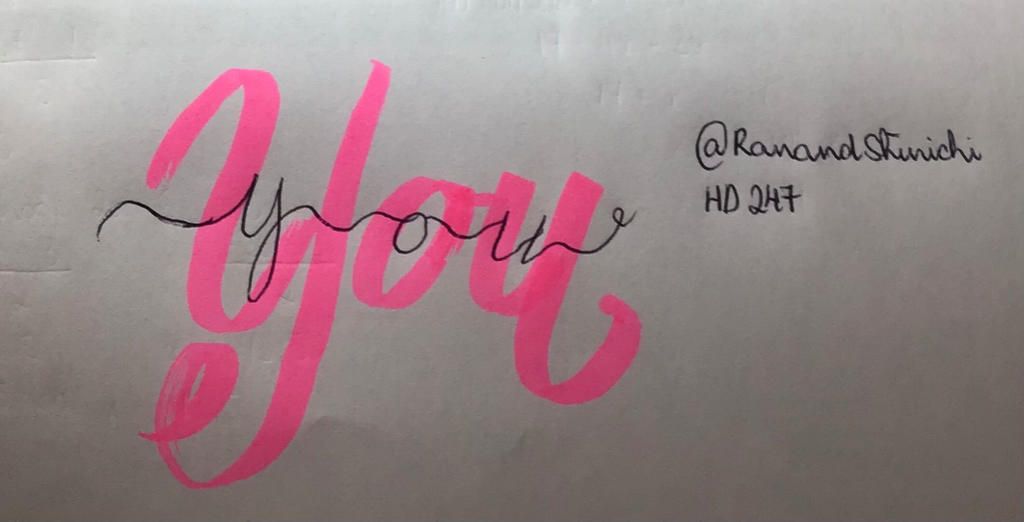 You
you
@RanandShinichi
HD 247